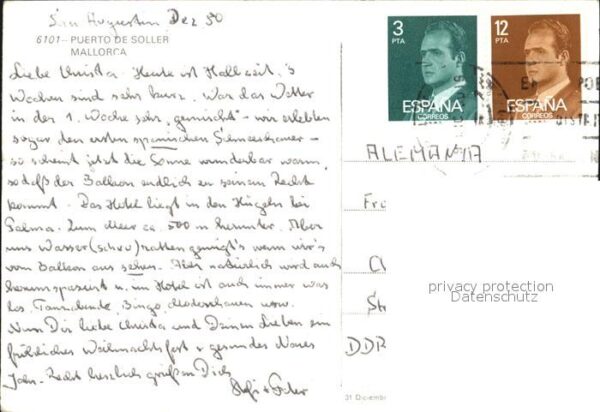 San Augustin Dez 80
6101 - PUERTO DE SOLLER
MALLORCA
Liebe Christa! Heute ist Halbzeit, 3
Wochen sind sehr kurz. War das Wetter
in der 1. Woche sehr "gemischt" - wir erlebten
sogar den ersten spanischen Schneeschauer -
so scheint jetzt die Sonne wunderbar warm,
sodaß der Balkon endlich zu seinem Recht
kommt. Das Hotel liegt in den Hügeln bei
Palma. Zum Meer ca. 500 m herunter. Aber
uns Wasser(scheu)ratten genügt's wenn wir's
vom Balkon aus sehen. Aber natürlich wird auch
herumspaziert u. im Hotel ist auch immer was
los. Tanzabende, Bingo, Modeschauen usw.
Nun Dir liebe Christa und Deinen Lieben ein
fröhliches Weihnachtsfest + gesundes Neues
Jahr. Recht herzlich grüßen Dich
3
PTA
ESPAÑA
CORREOS
12
PTA
ESPAÑA
CORREOS
ALEMANIA
Fr
privacy protection
Datenschutz
DDR
31 Diciembre